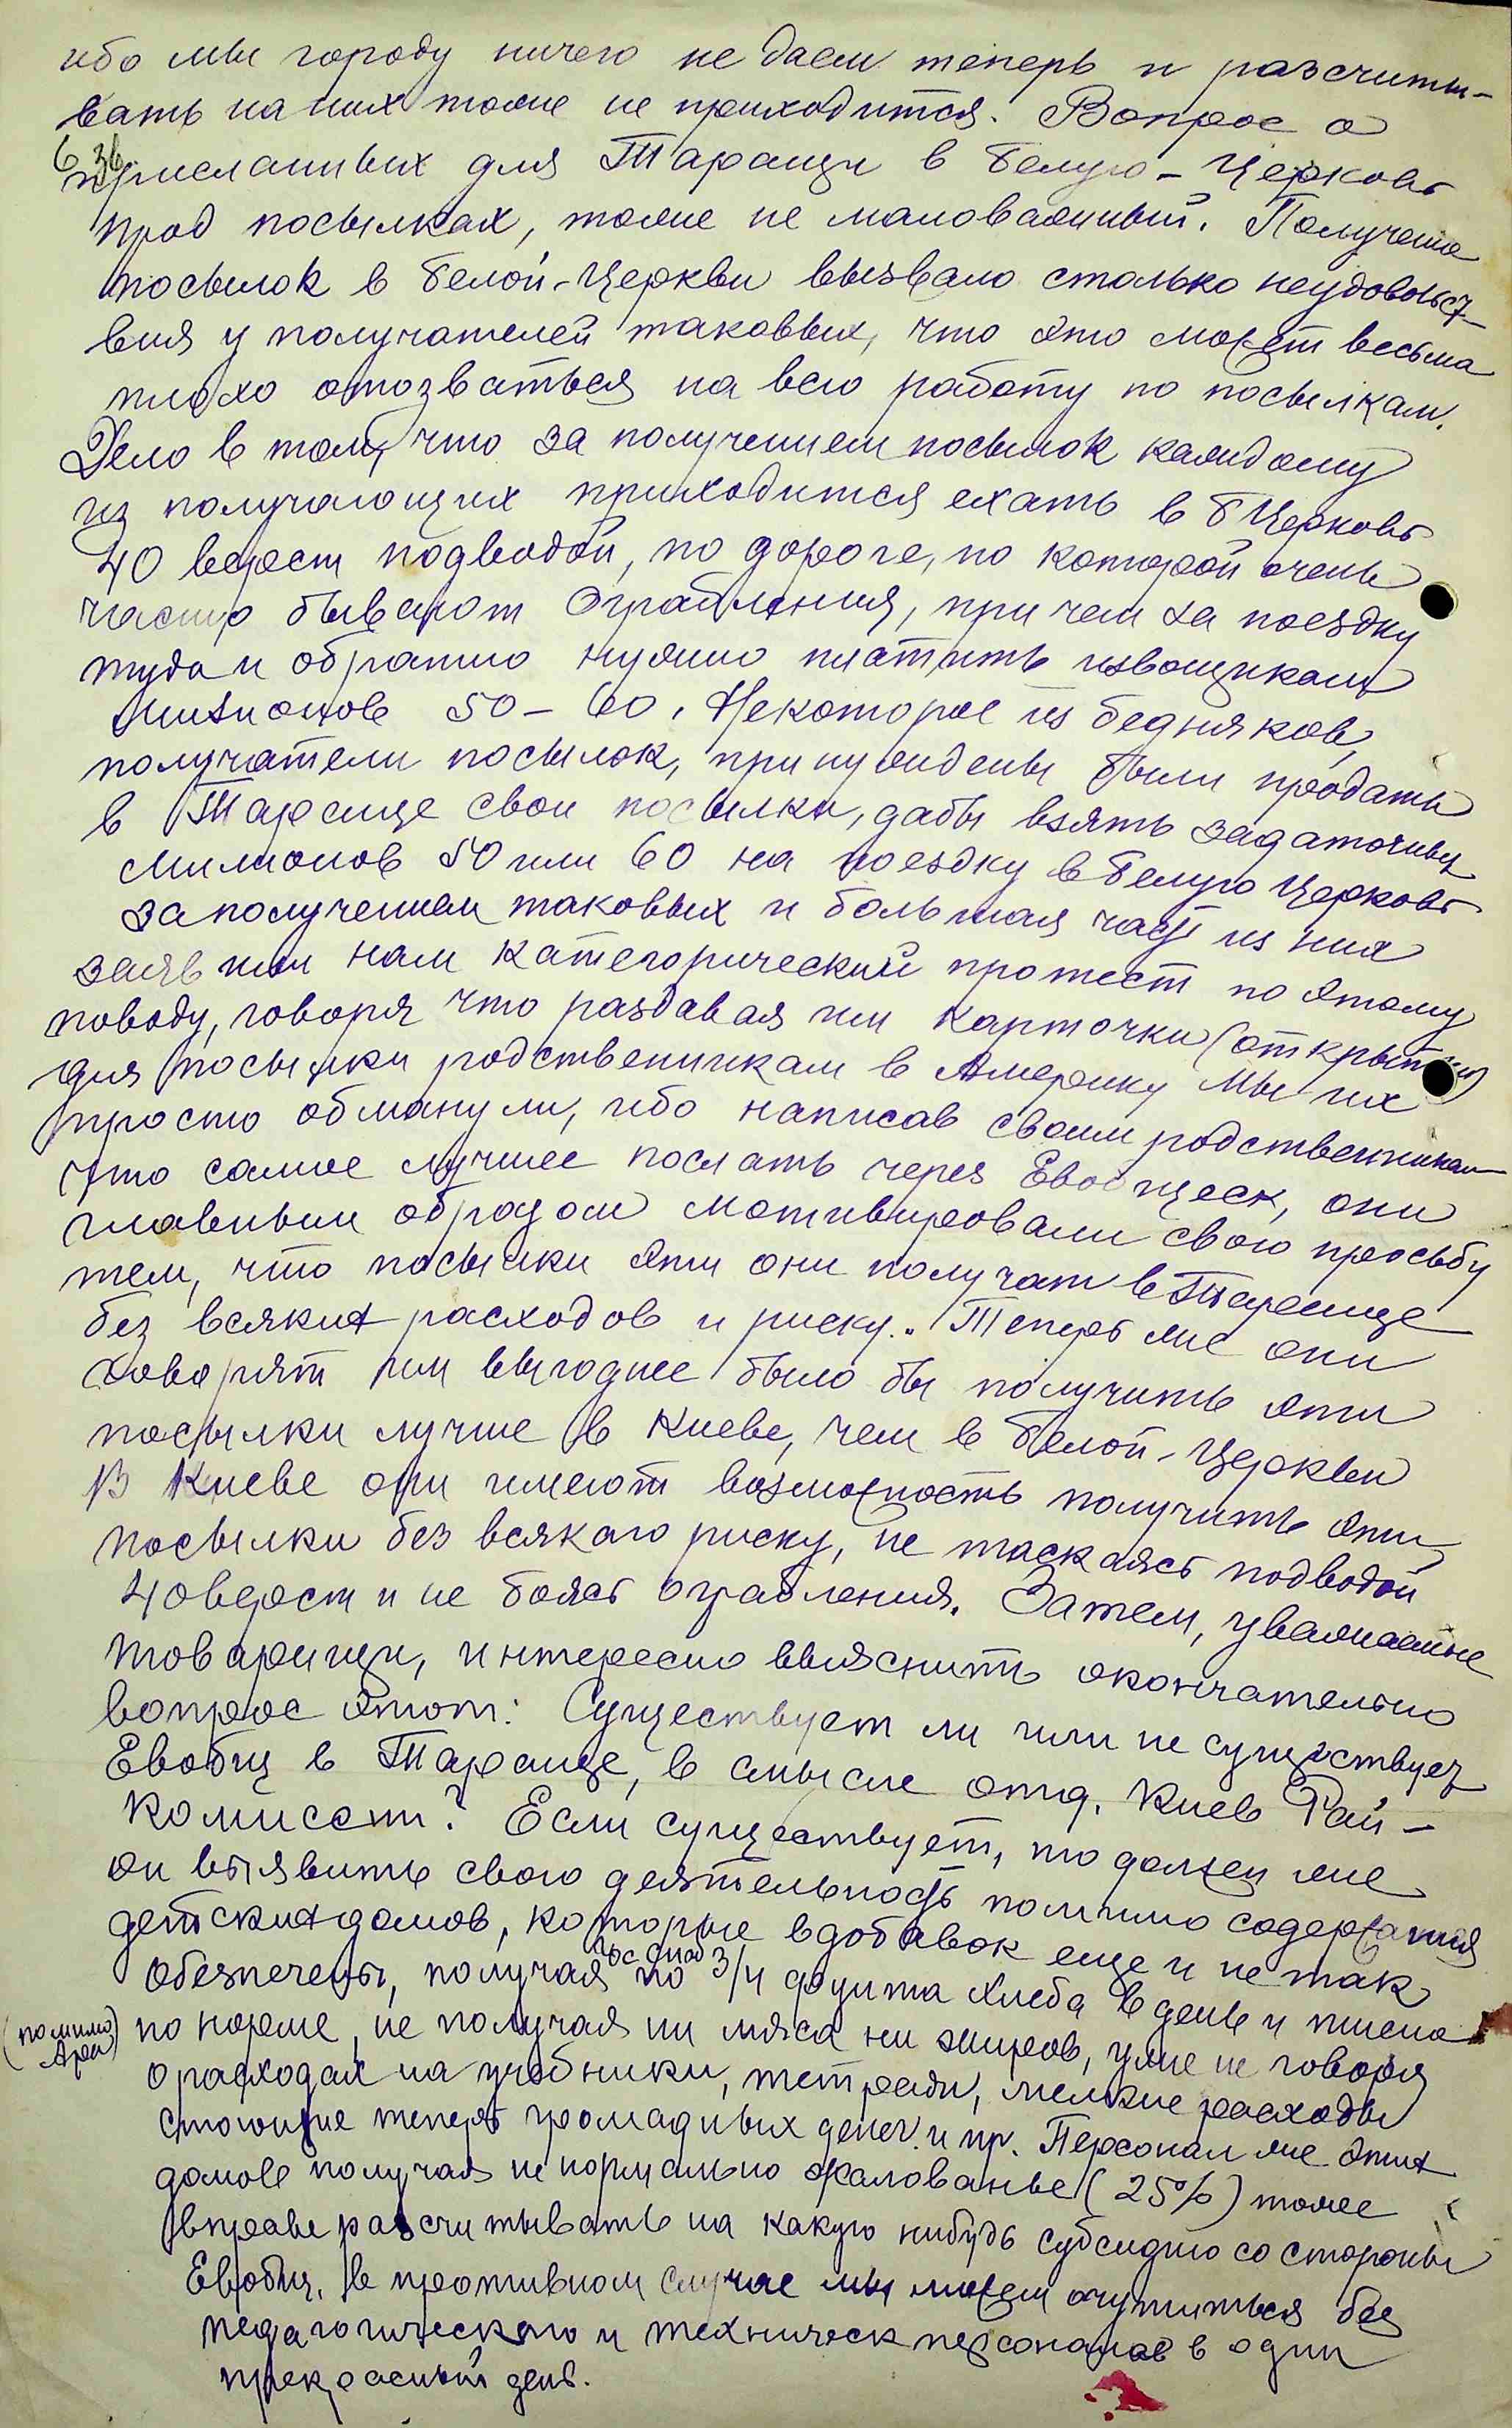 ибо мы городу ничего не даем теперь и разсчиты-
вать на них тоже не приходится. Вопрос о
присланных для Таращи в Белую-Церковь
прод посылках, тоже не маловажный. Получение
посылок в Белой-Церкви вызвало столько неудовольст-
вия у получателей таковых, что это может весьма
плохо отозваться на всю работу по посылкам.
Дело в том, что за получением посылок каждому
из получающих приходится ехать в БЦерковь
40 верст подводой, по дороге, по которой очень
часто бывают ограбления, при чем за поездку
туда и обратно нужно платить извощикам
миллионов 50-60. Некоторые из бедняков,
получатели посылок, принуждены были продать
в Тараще свои посылки, дабы взять задаточных
милионов 50 или 60 на поездку в Белую Церковь
за получением таковых и большая часть из них
заявили нам категорический протест по этому
поводу, говоря что раздавая им карточки (открытки)
для посылки родственникам в Америку мы их
просто обманули, ибо написав своим родственникам
что самое лучшее послать через Евобщеск, они
главным образом мотивировали свою просьбу
тем, что посылки эти они получат в Тараще
без всяких расходов и риску. Теперь же они
говорят им выгоднее было бы получить эти
посылки лучше в Киеве, чем в Белой-Церкви
В Киеве они имеют возможность получить эти
посылки без всякого риску, не таскаясь подводой
40 верст и не боясь ограбления. Затем, уважаемые
товарищи, интересно выяснить окончательно
вопрос этот: Существует ли или не существует
Евобщ в Тараще, в смысле отд. Киев Рай-
комиссии? Если существует, то должен же
он выявить свою деятельность помимо содержания
детских домов, которые вдобавок еще и не так
обезпечены, получая по 3/4 фунта хлеба в день и пшена
(помимо Ара) по норме, не получая ни мяса ни жиров, уже не говоря
о расходах на учебники, тетради, мелкие расходы
стоющие теперь громадных денег и пр. Персонал же этих
домов получая ненормально жалованье (25%) тоже
вправе разсчитывать на какую нибудь субсидию со стороны
Евобщ. в противном случае мы можем очутиться без
педагогического и техническ персоналов в один
прекрасный день.